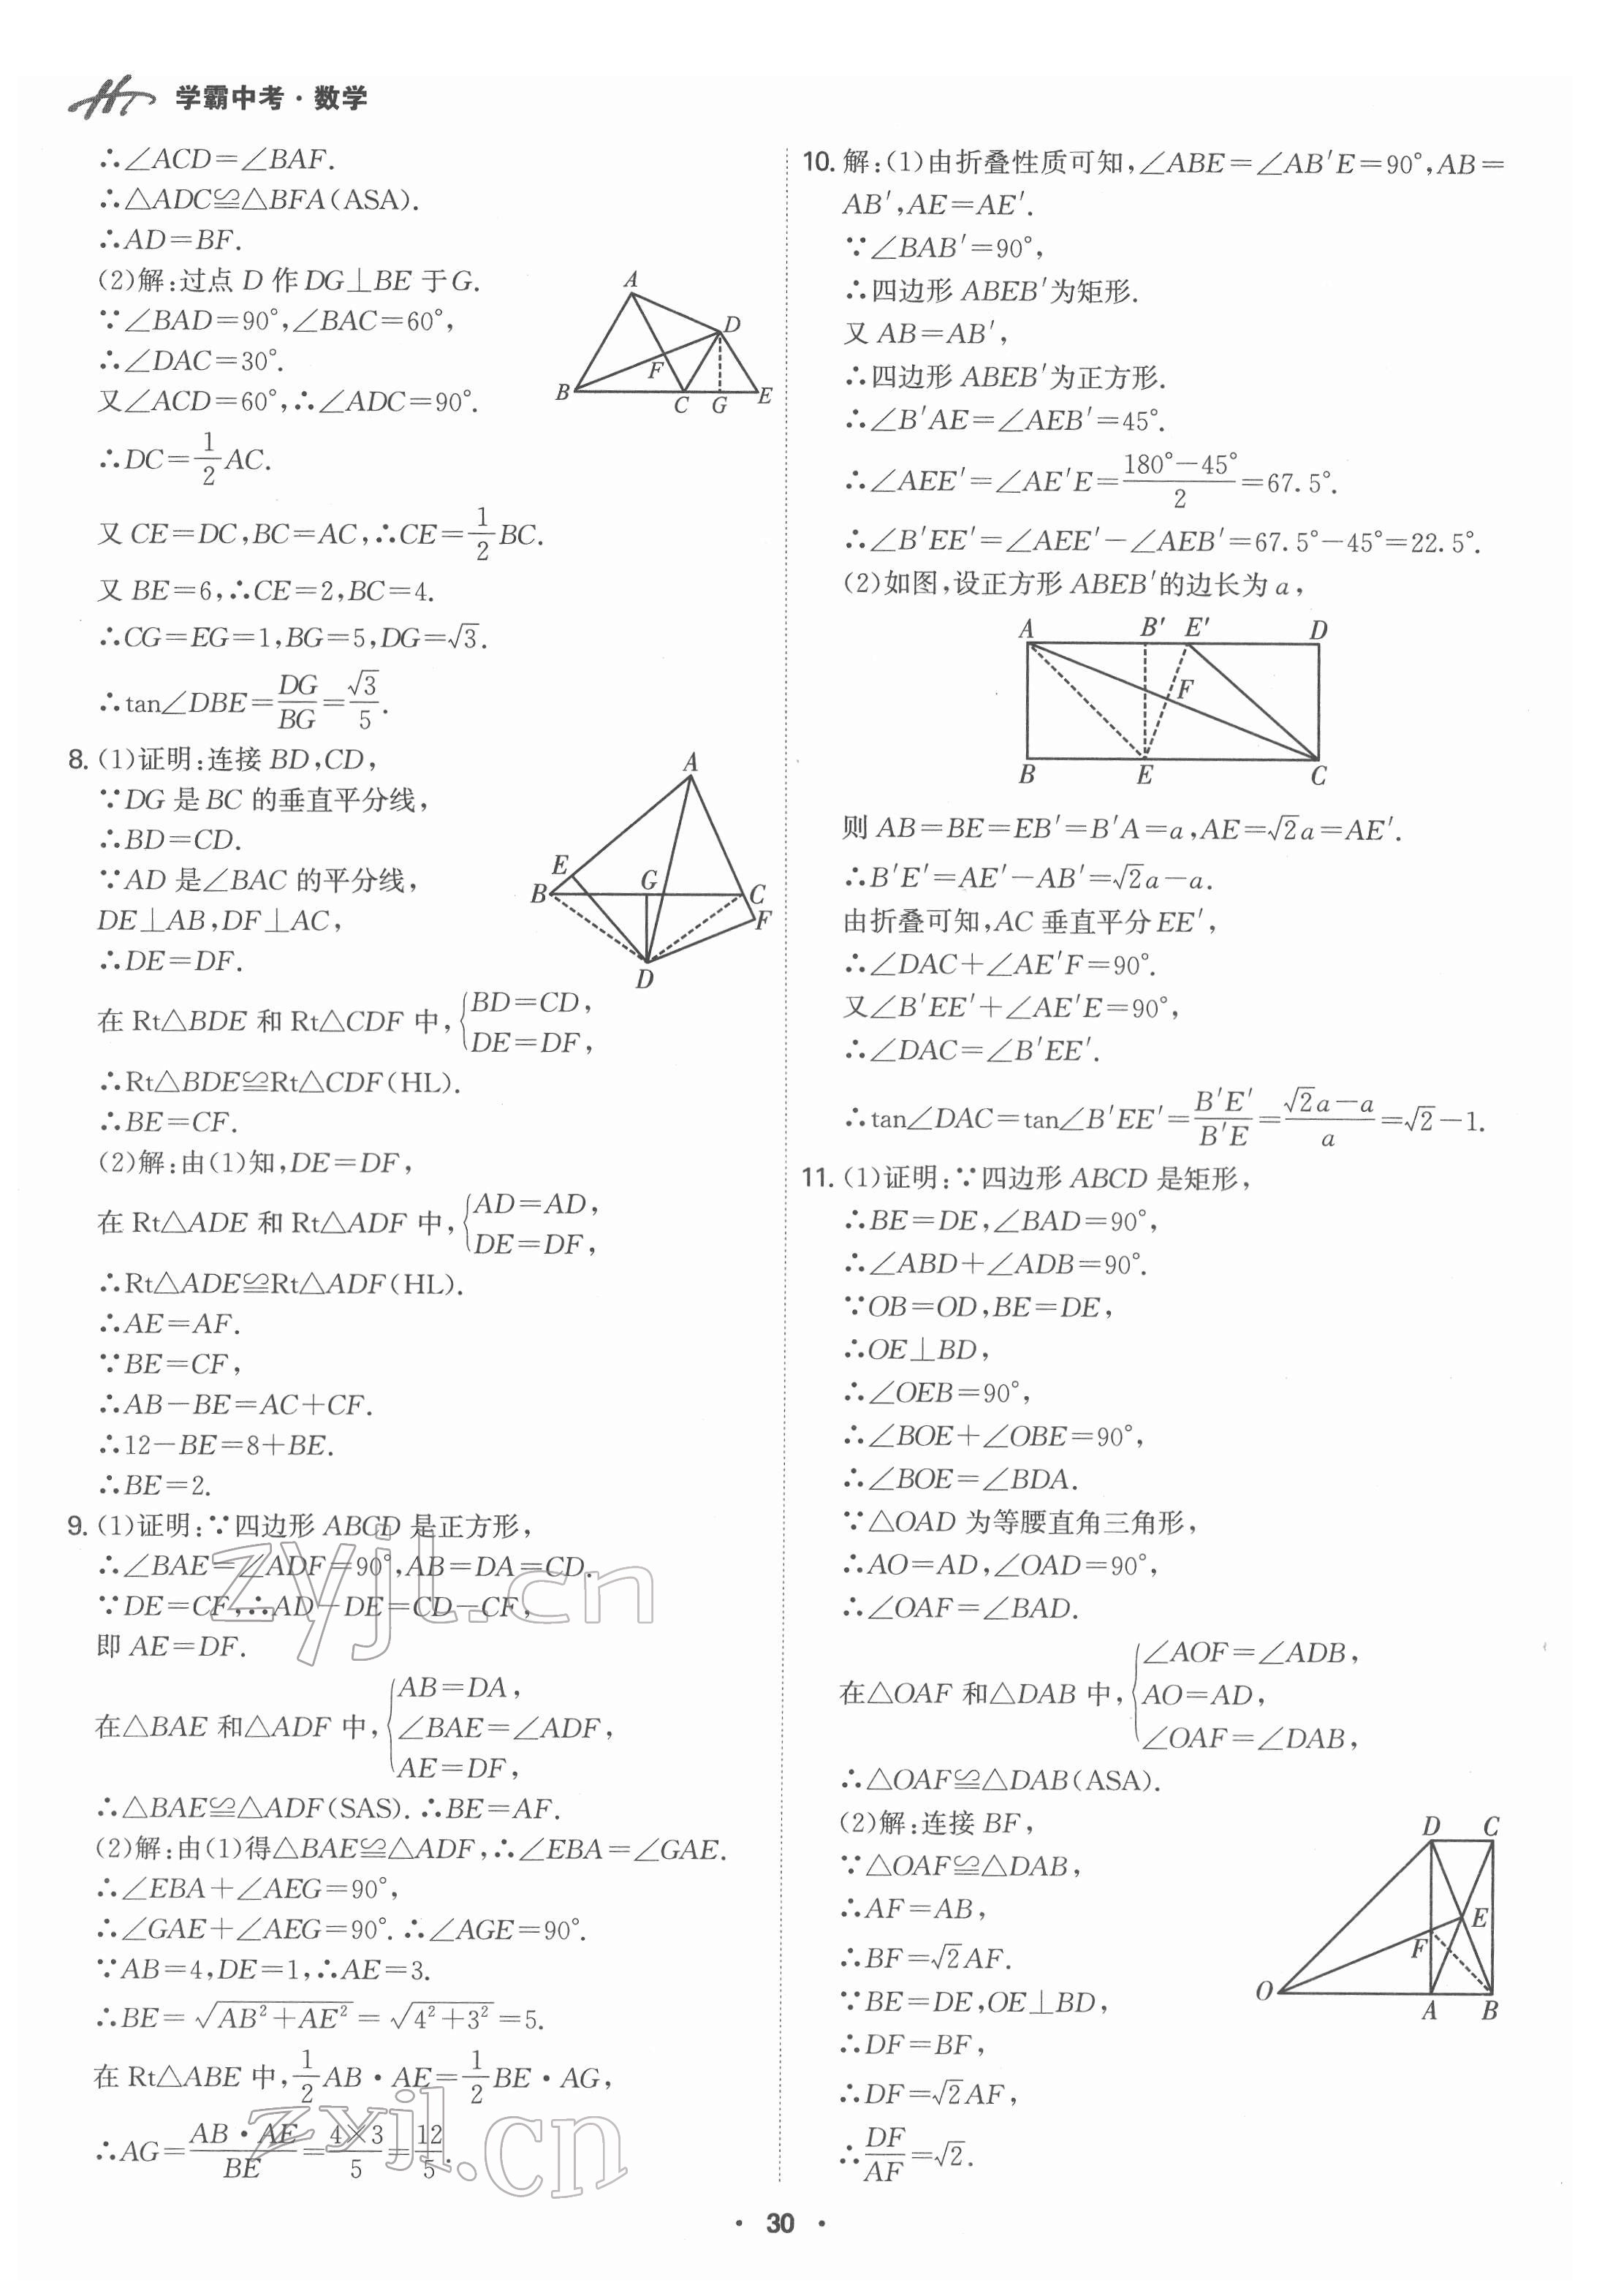 学霸中考·数学
∴∠ACD=∠BAF.
∴△ADC≌△BFA(ASA).
∴AD=BF.
(2)解:过点 D 作 DG⊥BE 于G.
∵∠BAD=90°,∠BAC=60°,
∴∠DAC=30°.
又∠ACD=60°,∴∠ADC=90°.
∴DC=1/2 AC.
又 CE=DC,BC=AC,∴CE=1/2 BC.
又 BE=6,∴CE=2,BC=4.
∴CG=EG=1,BG=5,DG=√3.
∴tan∠DBE=DG/BG=√3/5.
A
D
F
B
C
G
E
8. (1)证明:连接 BD,CD,
∵DG 是 BC 的垂直平分线,
∴BD=CD.
∵AD 是∠BAC 的平分线,
DE⊥AB,DF⊥AC,
∴DE=DF.
在 Rt△BDE 和 Rt△CDF 中,{BD=CD,
DE=DF,
∴Rt△BDE≌Rt△CDF(HL).
∴BE=CF.
(2)解:由(1)知,DE=DF,
在 Rt△ADE 和 Rt△ADF 中,{AD=AD,
DE=DF,
∴Rt△ADE≌Rt△ADF(HL).
∴AE=AF.
∵BE=CF,
∴AB−BE=AC+CF.
∴12−BE=8+BE.
∴BE=2.
A
E
B
G
C
F
D
9. (1)证明:∵四边形 ABCD 是正方形,
∴∠BAE=∠ADF=90°,AB=DA=CD.
∵DE=CF,∴AD−DE=CD−CF,
即 AE=DF.
在△BAE 和△ADF 中,{AB=DA,
∠BAE=∠ADF,
AE=DF,
∴△BAE≌△ADF(SAS). ∴BE=AF.
(2)解:由(1)得△BAE≌△ADF,∴∠EBA=∠GAE.
∴∠EBA+∠AEG=90°,
∴∠GAE+∠AEG=90°. ∴∠AGE=90°.
∵AB=4,DE=1,∴AE=3.
∴BE=√(AB²+AE²)=√(4²+3²)=5.
在 Rt△ABE 中,1/2 AB·AE=1/2 BE·AG,
∴AG=AB·AE/BE=4×3/5=12/5.
zyjl.cn
zyjl.cn
10. 解:(1)由折叠性质可知,∠ABE=∠AB′E=90°,AB=
AB′,AE=AE′.
∵∠BAB′=90°,
∴四边形 ABEB′为矩形.
又 AB=AB′,
∴四边形 ABEB′为正方形.
∴∠B′AE=∠AEB′=45°.
∴∠AEE′=∠AE′E=(180°−45°)/2=67.5°.
∴∠B′EE′=∠AEE′−∠AEB′=67.5°−45°=22.5°.
(2)如图,设正方形 ABEB′的边长为 a,
A
B′
E′
D
F
B
E
C
则 AB=BE=EB′=B′A=a,AE=√2a=AE′.
∴B′E′=AE′−AB′=√2a−a.
由折叠可知,AC 垂直平分 EE′,
∴∠DAC+∠AE′F=90°.
又∠B′EE′+∠AE′E=90°,
∴∠DAC=∠B′EE′.
∴tan∠DAC=tan∠B′EE′=B′E′/B′E=(√2a−a)/a=√2−1.
11. (1)证明:∵四边形 ABCD 是矩形,
∴BE=DE,∠BAD=90°,
∴∠ABD+∠ADB=90°.
∵OB=OD,BE=DE,
∴OE⊥BD,
∴∠OEB=90°,
∴∠BOE+∠OBE=90°,
∴∠BOE=∠BDA.
∵△OAD 为等腰直角三角形,
∴AO=AD,∠OAD=90°,
∴∠OAF=∠BAD.
在△OAF 和△DAB 中,{∠AOF=∠ADB,
AO=AD,
∠OAF=∠DAB,
∴△OAF≌△DAB(ASA).
(2)解:连接 BF,
∵△OAF≌△DAB,
∴AF=AB,
∴BF=√2AF.
∵BE=DE,OE⊥BD,
∴DF=BF,
∴DF=√2AF,
∴DF/AF=√2.
D
C
E
F
O
A
B
· 30 ·